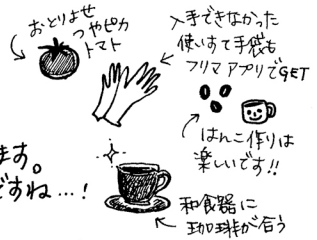 おとりよせ
つやピカ
トマト
入手できなかった
使いすて手袋も
フリマアプリでGET
はんこ作りは
楽しいです!!
ます。
ですね…!
和食器に
珈琲が合う